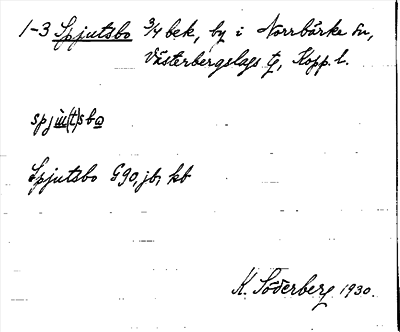 1-3 Spjutsbo 3/4 bek, by i Norrbärke sn,
Västerbergslags tg, Kopp. l.
spju̇(t)sbo
Spjutsbo G90, jb, kb
K. Söderberg 1930.